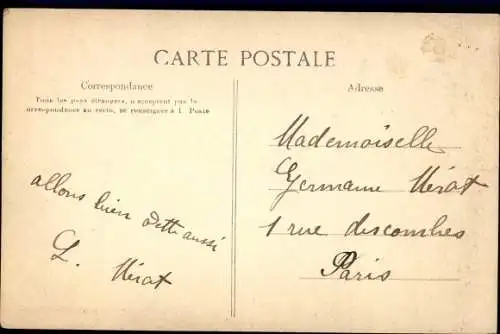 CARTE POSTALE
Correspondance
Tous les pays étrangers, n'acceptent pas la
correspondance au recto, se renseigner à l. Poste
allons bien aussi
L. Mérat
Adresse
Mademoiselle
Germaine Mérat
1 rue descombes
Paris